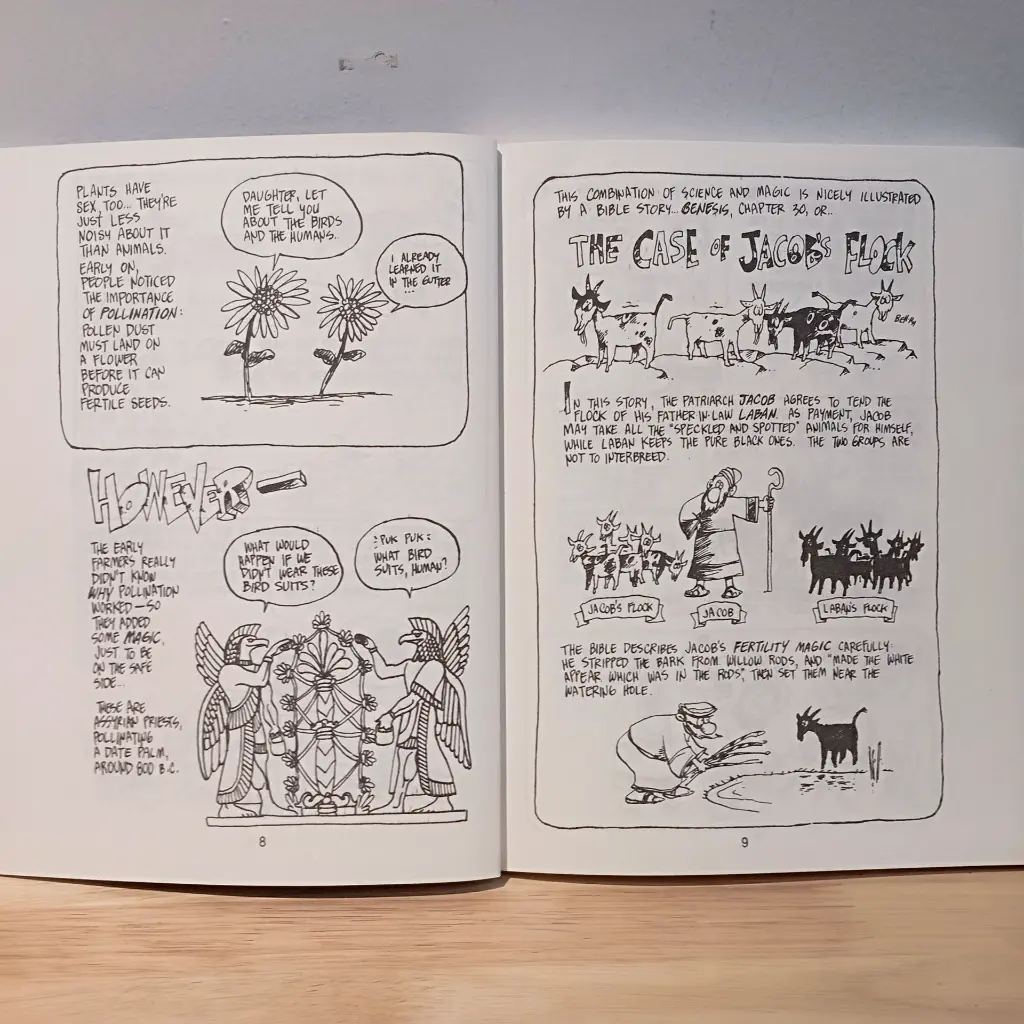 PLANTS HAVE
SEX, TOO... THEY'RE
JUST LESS
NOISY ABOUT IT
THAN ANIMALS.
EARLY ON,
PEOPLE NOTICED
THE IMPORTANCE
OF POLLINATION:
POLLEN DUST
MUST LAND ON
A FLOWER
BEFORE IT CAN
PRODUCE
FERTILE SEEDS.
DAUGHTER, LET
ME TELL YOU
ABOUT THE BIRDS
AND THE HUMANS..
I ALREADY
LEARNED IT
IN THE GUTTER
...
HOWEVER—
THE EARLY
FARMERS REALLY
DIDN'T KNOW
WHY POLLINATION
WORKED—SO
THEY ADDED
SOME MAGIC,
JUST TO BE
ON THE SAFE
SIDE...
THESE ARE
ASSYRIAN PRIESTS,
POLLINATING
A DATE PALM,
AROUND 800 B.C.
WHAT WOULD
HAPPEN IF WE
DIDN'T WEAR THESE
BIRD SUITS?
:PUK PUK:
WHAT BIRD
SUITS, HUMAN?
8
THIS COMBINATION OF SCIENCE AND MAGIC IS NICELY ILLUSTRATED
BY A BIBLE STORY... GENESIS, CHAPTER 30, OR...
THE CASE OF JACOB'S FLOCK
IN THIS STORY, THE PATRIARCH JACOB AGREES TO TEND THE
FLOCK OF HIS FATHER-IN-LAW LABAN. AS PAYMENT, JACOB
MAY TAKE ALL THE "SPECKLED AND SPOTTED" ANIMALS FOR HIMSELF,
WHILE LABAN KEEPS THE PURE BLACK ONES. THE TWO GROUPS ARE
NOT TO INTERBREED.
JACOB'S FLOCK
JACOB
LABAN'S FLOCK
THE BIBLE DESCRIBES JACOB'S FERTILITY MAGIC CAREFULLY:
HE STRIPPED THE BARK FROM WILLOW RODS, AND "MADE THE WHITE
APPEAR WHICH WAS IN THE RODS", THEN SET THEM NEAR THE
WATERING HOLE.
9